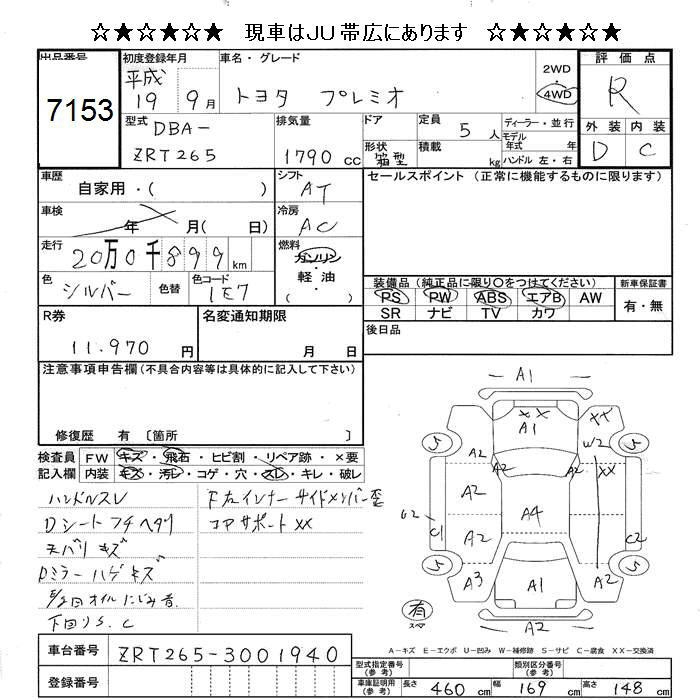 ☆★☆★☆★ 現車はJU帯広にあります ☆★☆★☆★
出品番号
7153
初度登録年月
平成
19 9月
車名・グレード
トヨタ プレミオ
2WD
・
4WD
評価点
R
外装 内装
D C
型式
DBA-
ZRT265
排気量
1790 cc
ドア
形状
箱型
定員
5人
積載
kg
ディーラー・並行
モデル
年式 年
ハンドル 左・右
車歴
自家用・( )
シフト
AT
セールスポイント (正常に機能するものに限ります)
車検
年 月( 日)
冷房
AC
走行
20万0千899km
燃料
ガソリン
軽・油
( )
色
シルバー
色替
色コード
1E7
装備品 (純正品に限り○をつけてください)
PS PW ABS エアB AW
SR ナビ TV カワ
新車保証書
有・無
R券
11.970 円
名変通知期限
月 日
後日品
注意事項申告欄(不具合内容等は具体的に記入して下さい)
修復歴 有 〔箇所 〕
検査員
記入欄
FW キズ・飛石・ヒビ割・リペア跡・×要
内装 キズ・汚レ・コゲ・穴・スレ・キレ・破レ
ハンドルスレ
Dシートフチヘタリ
天バリ キズ
Dミラー ハゲ キズ
下回りS.C
下左インナー サイドメンバー歪
コアサポートXX
A1
XX
A1
XX
5
5
A2
W2
A2
A2
XX
A2
G2
C1
A4
C2
A2
5
5
A3
A1
A2
A2
有
スペア
A-キズ E-エクボ U-凹み W-補修跡 S-サビ C-腐食 XX-交換済
車台番号
ZRT265-3001940
登録番号
型式指定番号
(参考)
類別区分番号
(参考)
車庫証明用
(参考)
長さ 460 cm
幅 169 cm
高さ 148 cm